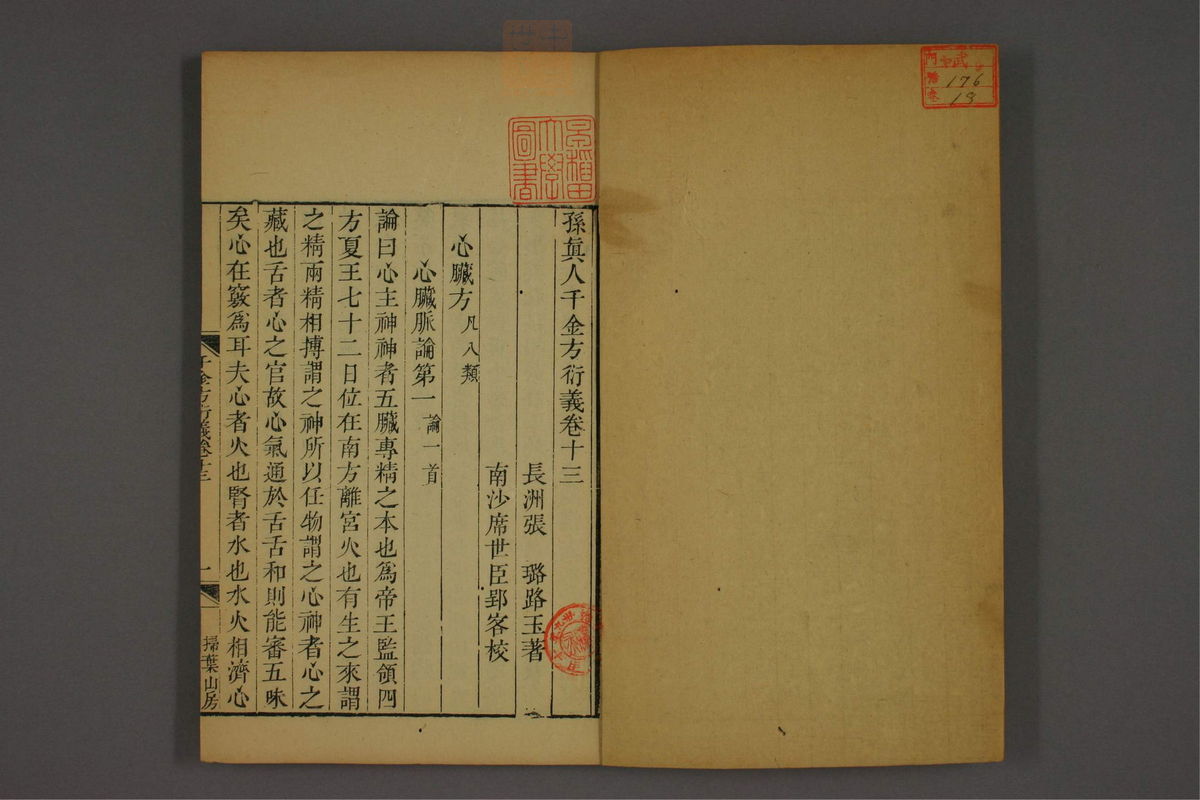 孫真人千金方衍義卷十三
長洲張 璐路玉著
南沙席世臣郢客校
心臟方凡八類
心臟脈論第一論一首
論曰心主神神者五臟專精之本也爲帝王監領四
方夏王七十二日位在南方離宮火也有生之來謂
之精兩精相搏謂之神所以任物謂之心神者心之
藏也舌者心之官故心氣通於舌舌和則能審五味
矣心在竅爲耳夫心者火也腎者水也水火相濟心
千金方衍義卷十三
一
掃葉山房
早稻田大學圖書
門
號 176
卷 18